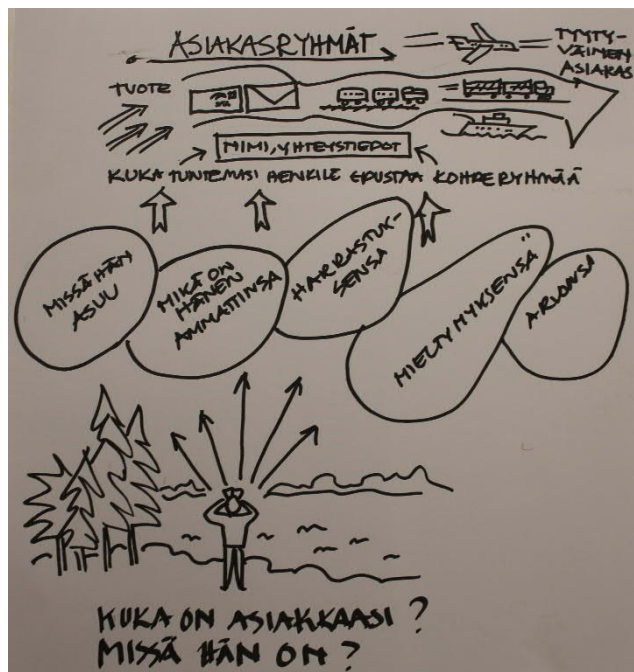 ASIAKASRYHMÄT
TYYTY-
VÄINEN
ASIAKAS
TUOTE
NIMI, YHTEYSTIEDOT
KUKA TUNTEMASI HENKILÖ EDUSTAA KOHDERYHMÄÄ
MISSÄ HÄN
ASUU
MIKÄ ON
HÄNEN
AMMATTINSA
HARRASTUK-
SENSA
MIELTYMYKSENSÄ
ARVONSA
KUKA ON ASIAKKAASI?
MISSÄ HÄN ON?